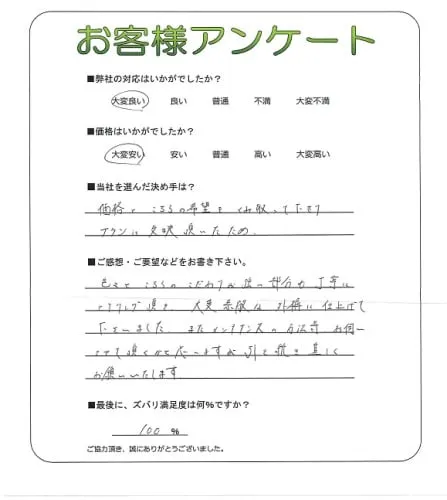 お客様アンケート
■弊社の対応はいかがでしたか？
大変良い 良い 普通 不満 大変不満
■価格はいかがでしたか？
大変安い 安い 普通 高い 大変高い
■当社を選んだ決め手は？
価格と こちらの希望を くみ取って下さり
プランに反映頂いたため.
■ご感想・ご要望などをお書き下さい。
色々とこちらの こだわり 部分も 丁寧に
ヒアリング頂き、大変素敵な 外構に仕上げて
下さいました。 またメンテナンスの方法等 お伺い
させて頂くかと思いますが 引き続き宜しく
お願いいたします
■最後に、ズバリ満足度は何%ですか？
100 %
ご協力頂き、誠にありがとうございました。